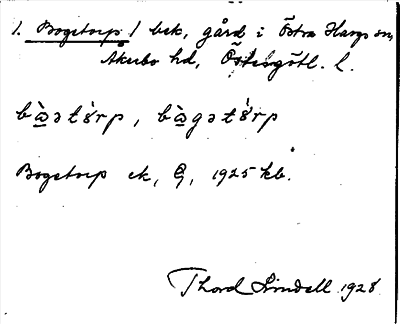 1. Bogetorp / bek, gård i Östra Hargs sn,
Åkerbo hd, Östergötl. l.
bȯ̤̀ət𝑜́rp, bȯ̤̀gət𝑜́rp
Bogetorp ek, G, 1925 kb.
Thord Lindell 1928